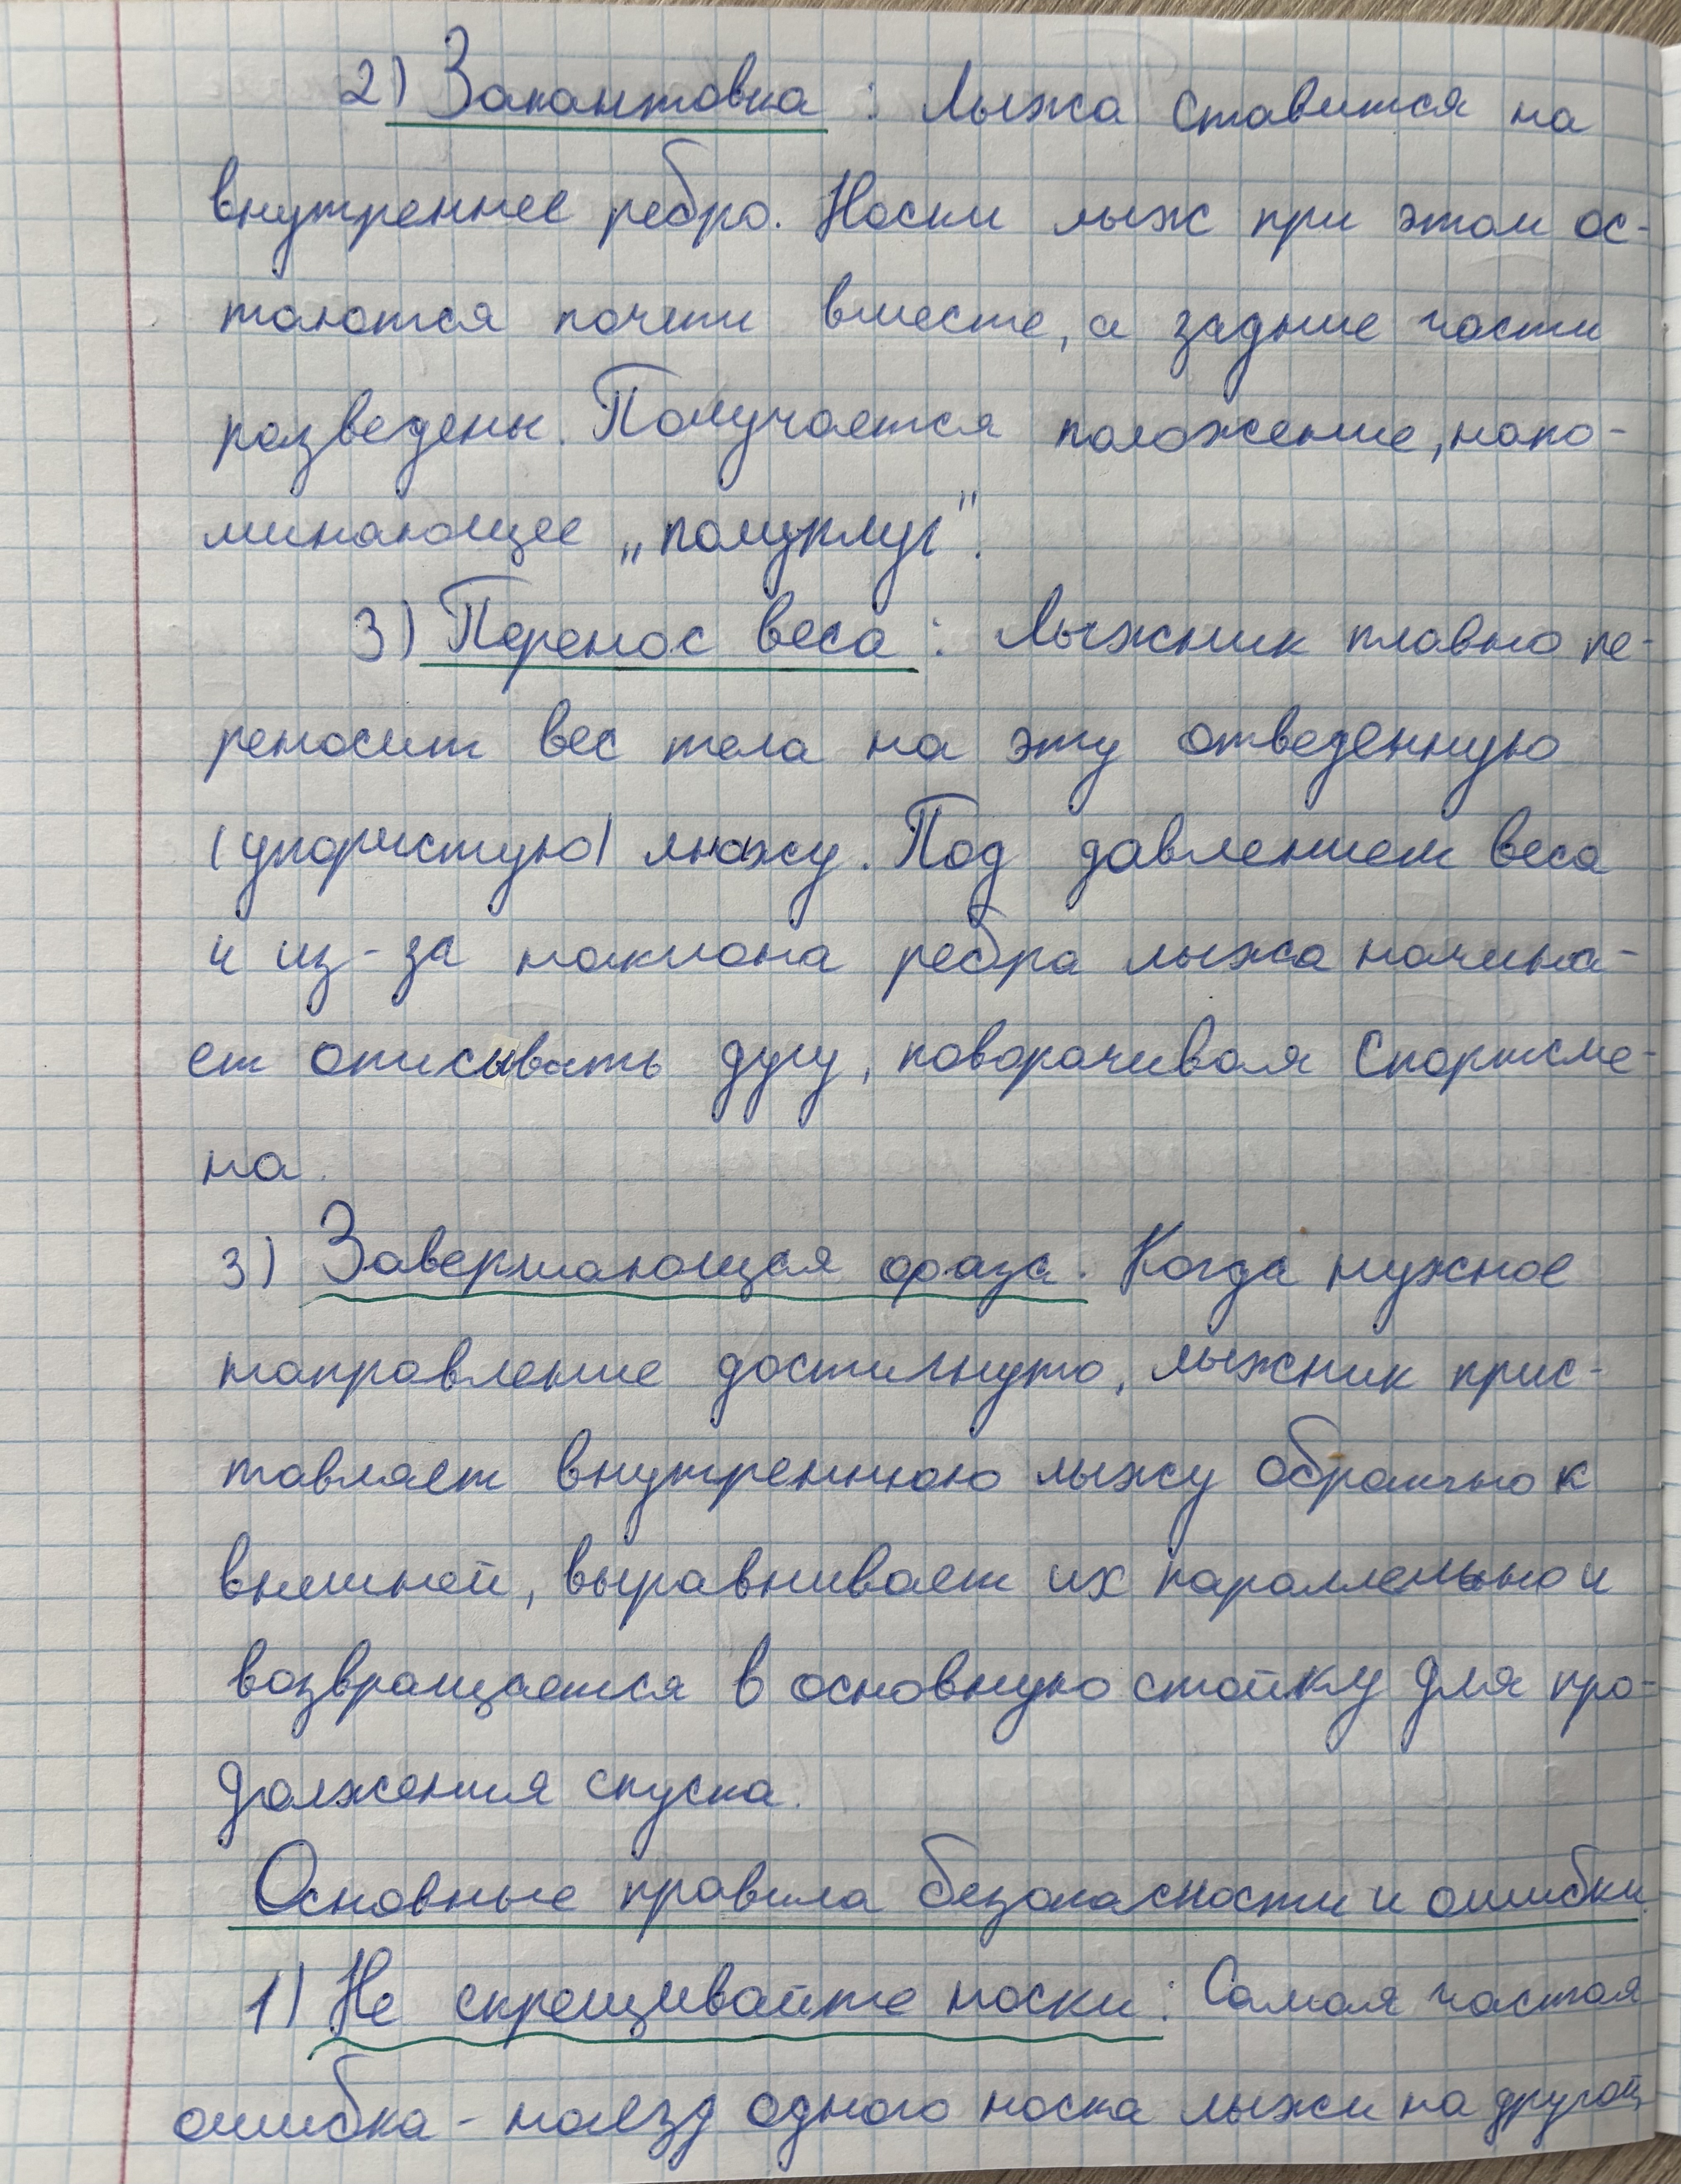 2) Закантовка : Лыжа ставится на
внутреннее ребро. Носки лыж при этом ос-
таются почти вместе, а задние части
разведены. Получается положение, напо-
минающее „полуплуг".
3) Перенос веса : Лыжник плавно пе-
реносит вес тела на эту отведенную
(упористую) лыжу. Под давлением веса
и из-за наклона ребра лыжа начина-
ет описывать дугу, поворачивая спортсме-
на.
3) Завершающая фаза. Когда нужное
направление достигнуто, лыжник прис-
тавляет внутреннюю лыжу обратно к
внешней, выравнивает их параллельно и
возвращается в основную стойку для про-
должения спуска.
Основные правила безопасности и ошибки.
1) Не скрещивайте носки : Самая частая
ошибка - наезд одного носка лыжи на другой,